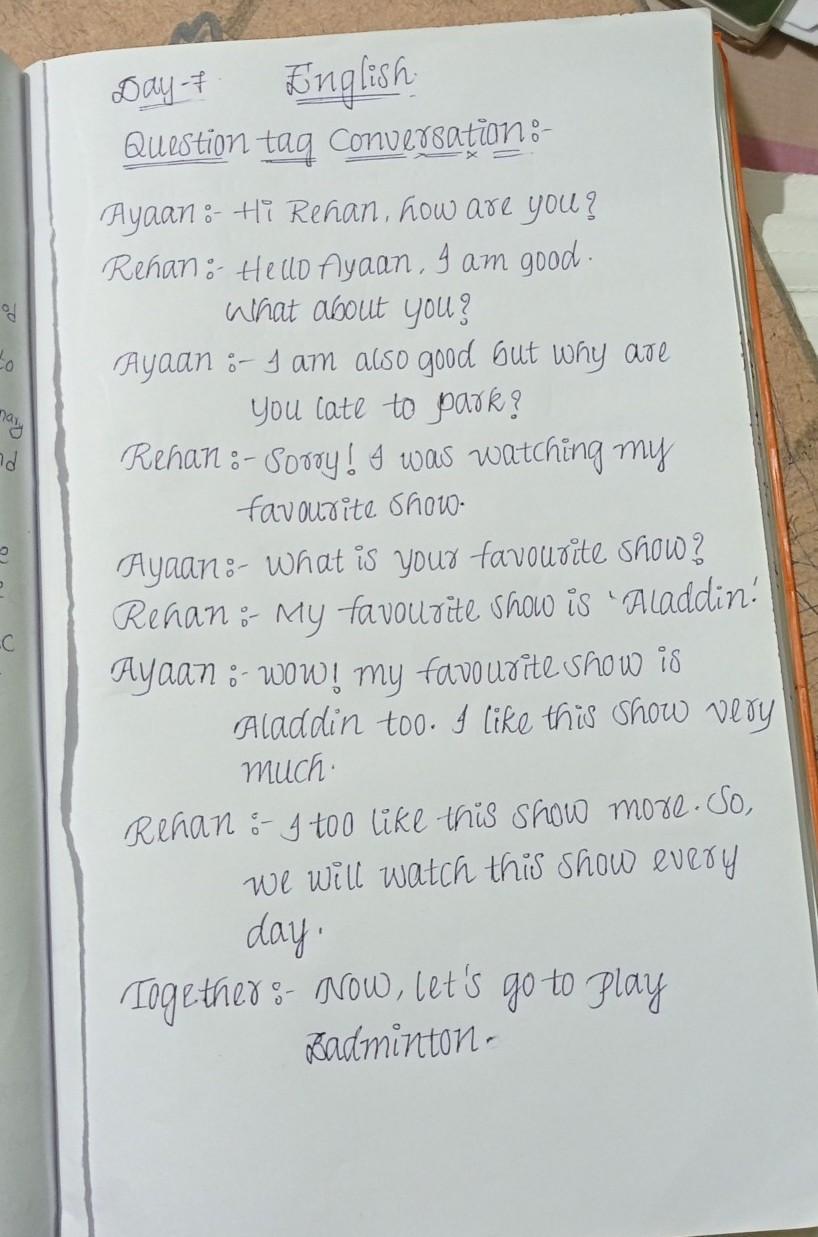 Day-7 English
Question tag Conversation:-
Ayaan :- Hi Rehan, how are you?
Rehan :- Hello Ayaan, I am good.
What about you?
Ayaan :- I am also good but why are
you late to park?
Rehan :- Sorry! I was watching my
favourite show.
Ayaan :- What is your favourite show?
Rehan :- My favourite show is 'Aladdin'.
Ayaan :- wow! my favourite show is
Aladdin too. I like this show very
much.
Rehan :- I too like this show more. So,
we will watch this show every
day.
Together :- Now, let's go to play
Badminton.